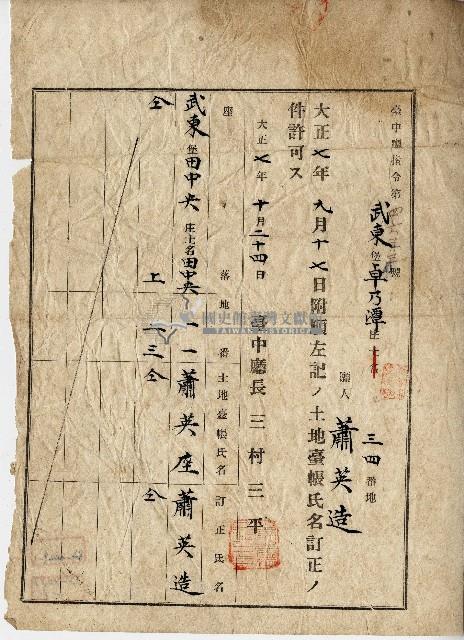 臺中廳指令第 號
武東堡卓乃潭庄
三四番地
願人 蕭英造
大正七年九月十七日附願左記ノ土地臺帳氏名訂正ノ
件許可ス
大正七年十月二十四日
臺中廳長 三村三平
座落 地番 土地臺帳氏名 訂正氏名
武東堡田中央庄土名田中央 一一 蕭英座 蕭英造
仝 上 六三 仝 仝
國史館臺灣文獻館
TAIWAN HISTORICA